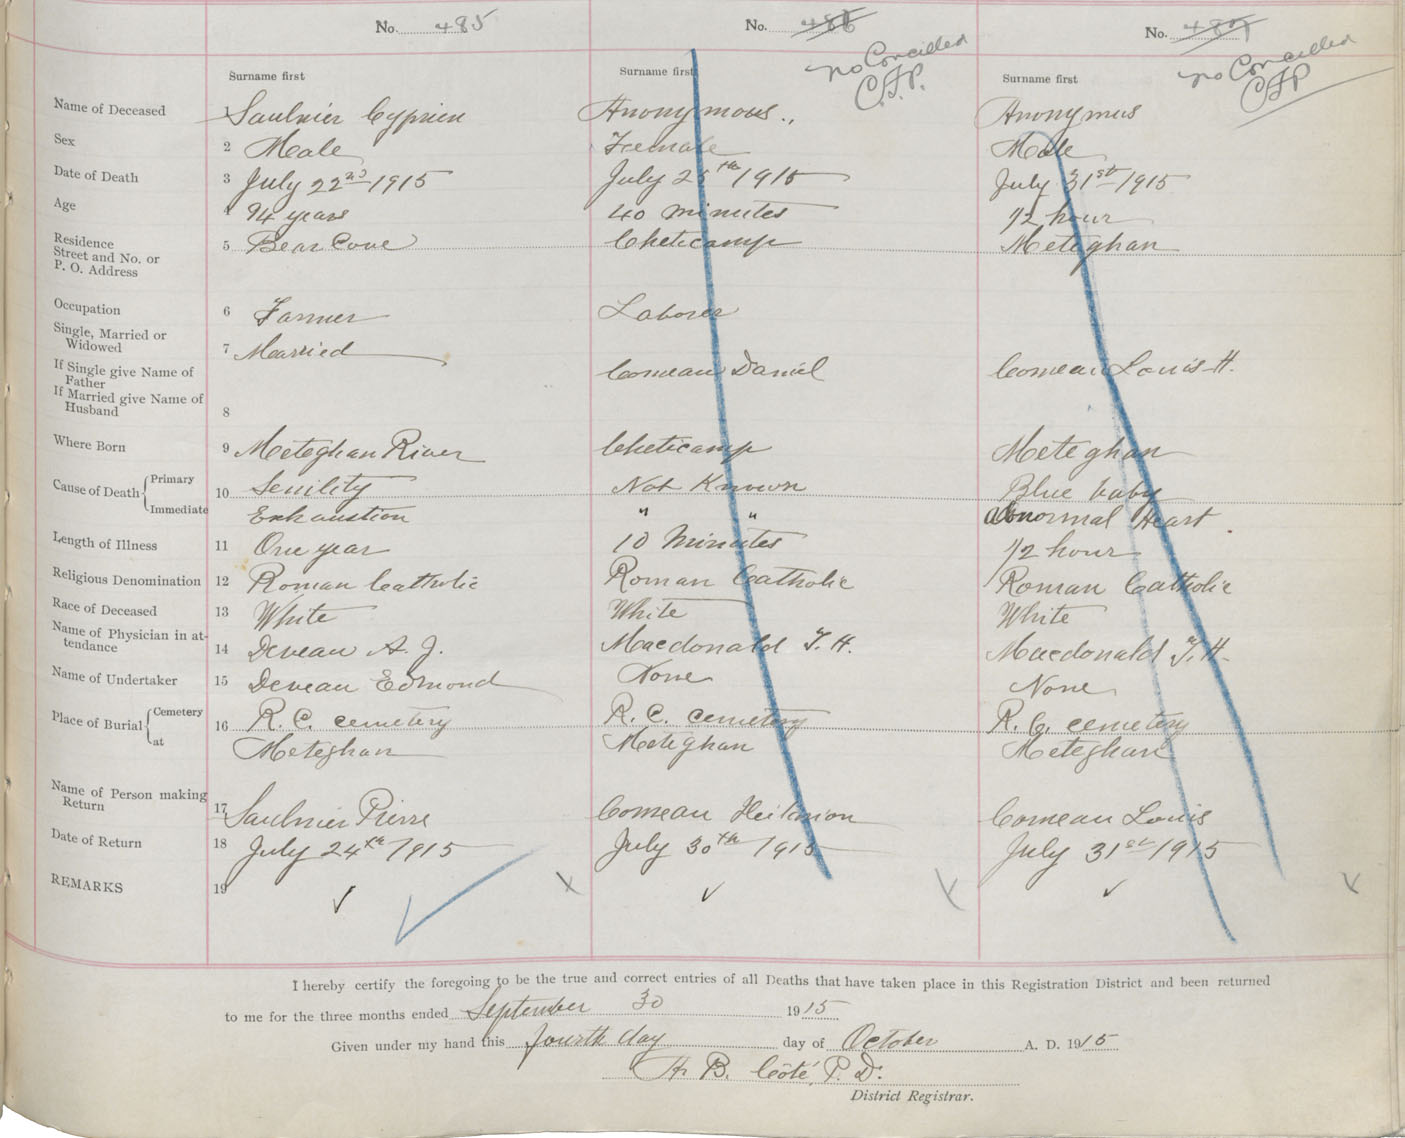 No. 485 No. 486 No. 487
no Concilled no Concilled
C.F.P. CFP
Surname first Surname first Surname first
Name of Deceased 1 Saulnier Cyprien Anonymous., Anonymus
Sex 2 Male Female Male
Date of Death 3 July 22nd 1915 July 25th 1915 July 31st 1915
Age 4 94 years 40 minutes 1/2 hour
Residence
Street and No. or
P. O. Address
5 Bear Cove Cheticamp Meteghan
Occupation 6 Farmer Laborer
Single, Married or
Widowed
7 Married
If Single give Name of
Father
Comeau Daniel Comeau Louis H.
If Married give Name of
Husband
8
Where Born 9 Meteghan River Cheticamp Meteghan
Cause of Death Primary 10 Senility Not Known Blue baby
Immediate Exhaustion " " abnormal Heart.
Length of Illness 11 One year 10 Minutes 1/2 hour
Religious Denomination 12 Roman Catholic Roman Catholic Roman Catholic
Race of Deceased 13 White White White
Name of Physician in at-
tendance
14 Deveau A. J. Macdonald T. H. Macdonald T. H.
Name of Undertaker 15 Deveau Edmond None None
Place of Burial Cemetery 16 R. C. cemetery R. C. cemetery R. C. cemetery
at Meteghan Meteghan Meteghan
Name of Person making
Return
17 Saulnier Pierre Comeau Comeau Louis
Date of Return 18 July 24th 1915 July 30th 1915 July 31st 1915
REMARKS 19
I hereby certify the foregoing to be the true and correct entries of all Deaths that have taken place in this Registration District and been returned
to me for the three months ended September 30 1915
Given under my hand this fourth day day of October A. D. 1915
H. B. Côté, P. D.
District Registrar.